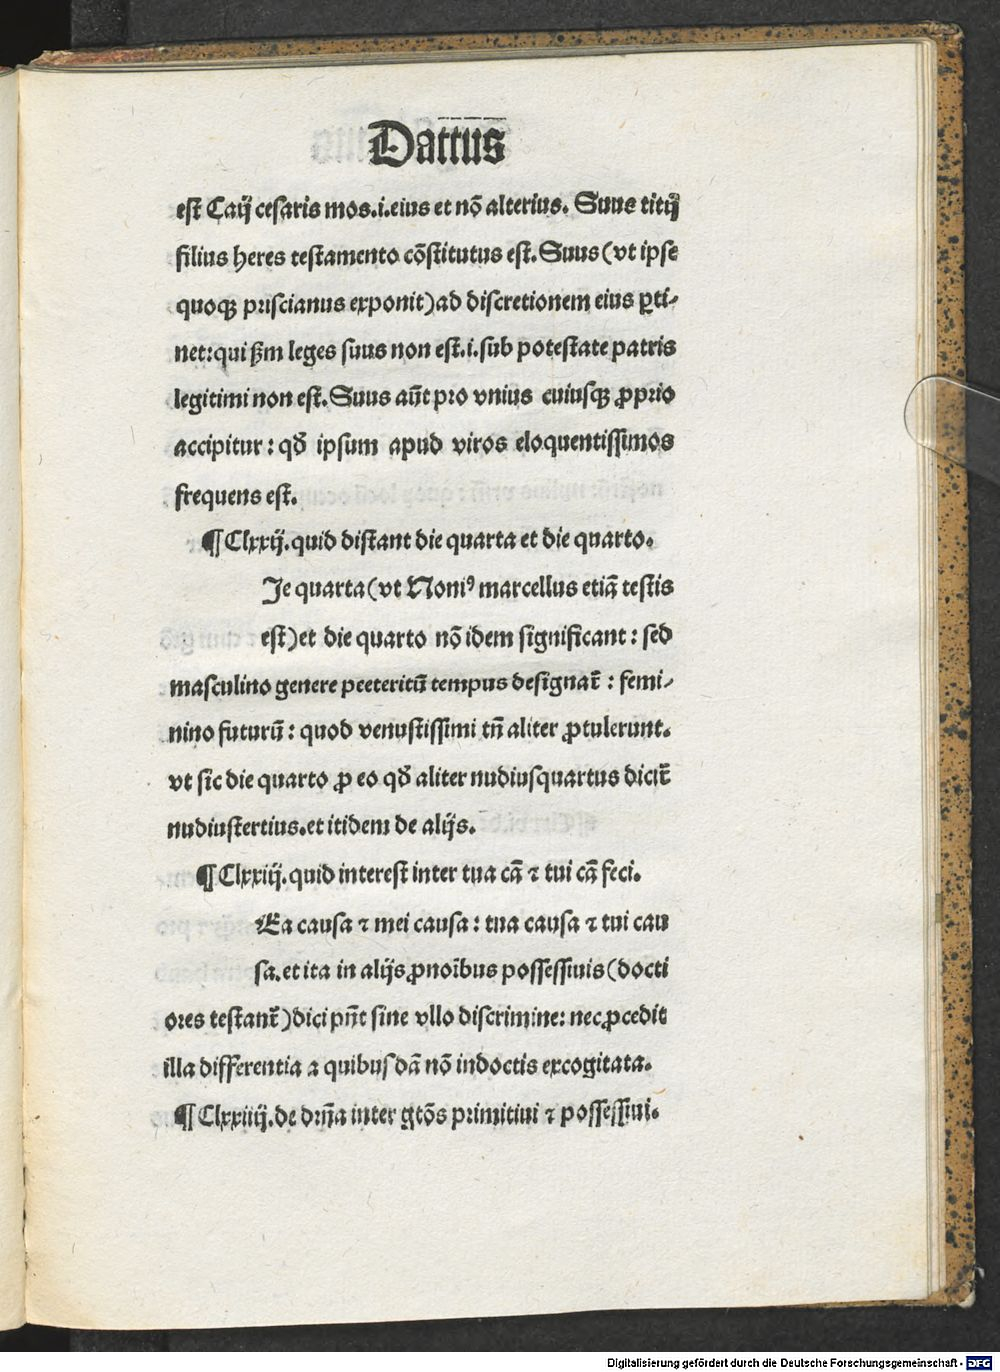 Dattus
est Caij cesaris mos.i.eius et nō alterius. Suus titij
filius heres testamento cōstitutus est. Suus (vt ipse
quoqꝫ priscianus exponit) ad discretionem eius ꝑti⸗
net: qui ẞm leges suus non est.i.sub potestate patris
legitimi non est. Suus aūt pro vnius cuiusqꝫ ꝓprio
accipitur: qđ ipsum apud viros eloquentissimos
frequens est.
¶ Clxxij. quid distant die quarta et die quarto.
Ie quarta (vt Noniꝰ marcellus etiā testis
est) et die quarto nō idem significant: sed
masculino genere peeteritū tempus designat̄: femi⸗
nino futurū: quod venustissimi tn̄ aliter ꝓtulerunt.
vt sic die quarto ꝓ eo qđ aliter nudiusquartus dicit̄
nudiustertius. et itidem de alijs.
¶ Clxxiij. quid interest inter tua cā ⁊ tui cā feci.
Ea causa ⁊ mei causa: tua causa ⁊ tui cau
sa. et ita in alijs ꝓnoībus possessiuis (docti
ores testant̄) dici pn̄t sine vllo discrimine: nec ꝓcedit
illa differentia a quibusdā nō indoctis excogitata.
¶ Clxxiiij. de drn̄a inter gtōs primitiui ⁊ possessiui.
Digitalisierung gefördert durch die Deutsche Forschungsgemeinschaft - DFG